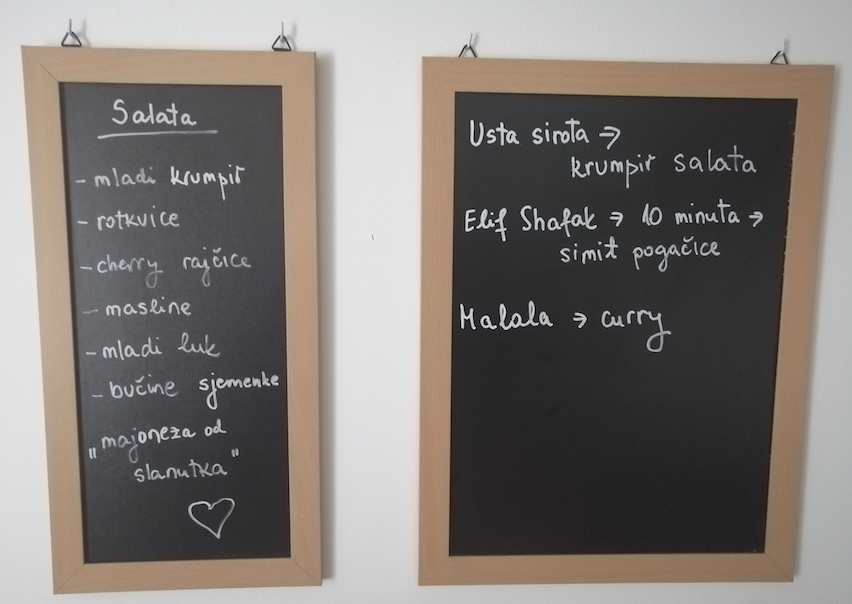 Salata
- mladi krumpir
- rotkvice
- cherry rajčice
- masline
- mladi luk
- bučine sjemenke
„majoneza od
slanutka"
Usta sirota →
krumpir salata
Elif Shafak → 10 minuta →
simit pogačice
Malala → curry